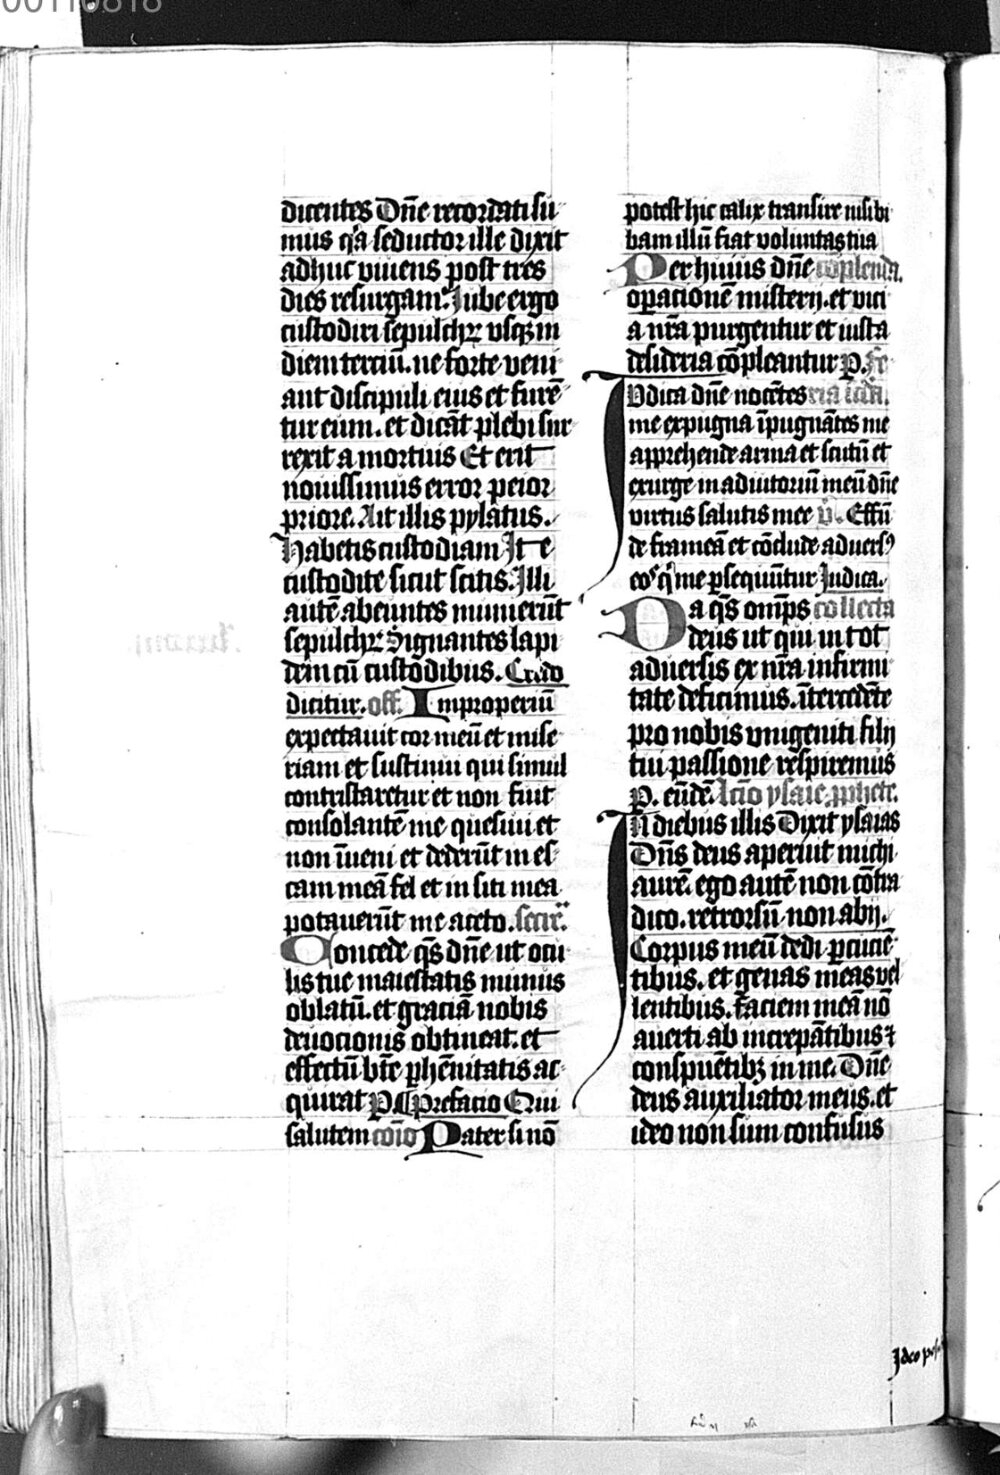 00110818
dicentes Dn̄e recordati su
mus qꝛa seductor ille dixit
adhuc viuens post tres
dies resurgam. Iube ergo
custodiri sepulchꝝ vsqꝫ in
diem terciū. ne forte veni
ant discipuli eius et furē
tur eum. et dicāt plebi sur
rexit a mortuis Et erit
nouissimus error peior
priore. Ait illis pylatus.
Habetis custodiam Ite
custodite sicut scitis. Illi
autē abeuntes munierūt
sepulchꝝ Signantes lapi
dem cū custodibus. Credo
dicitur. off. Improperiū
expectauit cor meū et mise
riam et sustinui qui simul
contristaretur et non fuit
consolantē me quesiui et
non īueni et dederūt in es
cam meā fel et in siti mea
potauerūt me aceto. secr̄.
Concede qs̄ dn̄e ut ocu
lis tue maiestatis munus
oblatū. et graciā nobis
deuocionis obtineat. et
effectū btē ꝑhēnitatis ac
quirat P. Prefacio Qui
salutem cōio Pater si nō
potest hic calix transire nisi bi
bam illū fiat voluntas tua
Per huius dn̄e cōplenda.
oꝑacionē misterij. et vici
a nr̄a purgentur et iusta
desideria cōpleantur P. Fe
Iudica dn̄e nocētes ria iiiia.
me expugna īpugnātes me
apprehende arma et scutū et
exurge in adiutoriū meū dn̄e
virtus salutis mee v̄. Effū
de frameā et cōclude aduersꝰ
eos q̄ me ꝑsequūtur Iudica.
Da qs̄ om̄ps collecta
deus ut qui in tot
aduersis ex nr̄a infirmi
tate deficimus. ītercedēte
pro nobis vnigeniti filij
tui passione respiremus
P. eūdē. Lectio ysaie ꝓphete.
In diebus illis Dixit ysaias
Dn̄s deus aperuit michi
aurē. ego autē non cōtra
dico. retrorsū non abij.
Corpus meū dedi ꝑcucie
tibus. et genas meas vel
lentibus. Faciem meā nō
auerti ab increpātibus ⁊
conspuētibꝫ in me. Dn̄e
deus auxiliator meus. et
ideo non sum confusus
Ideo